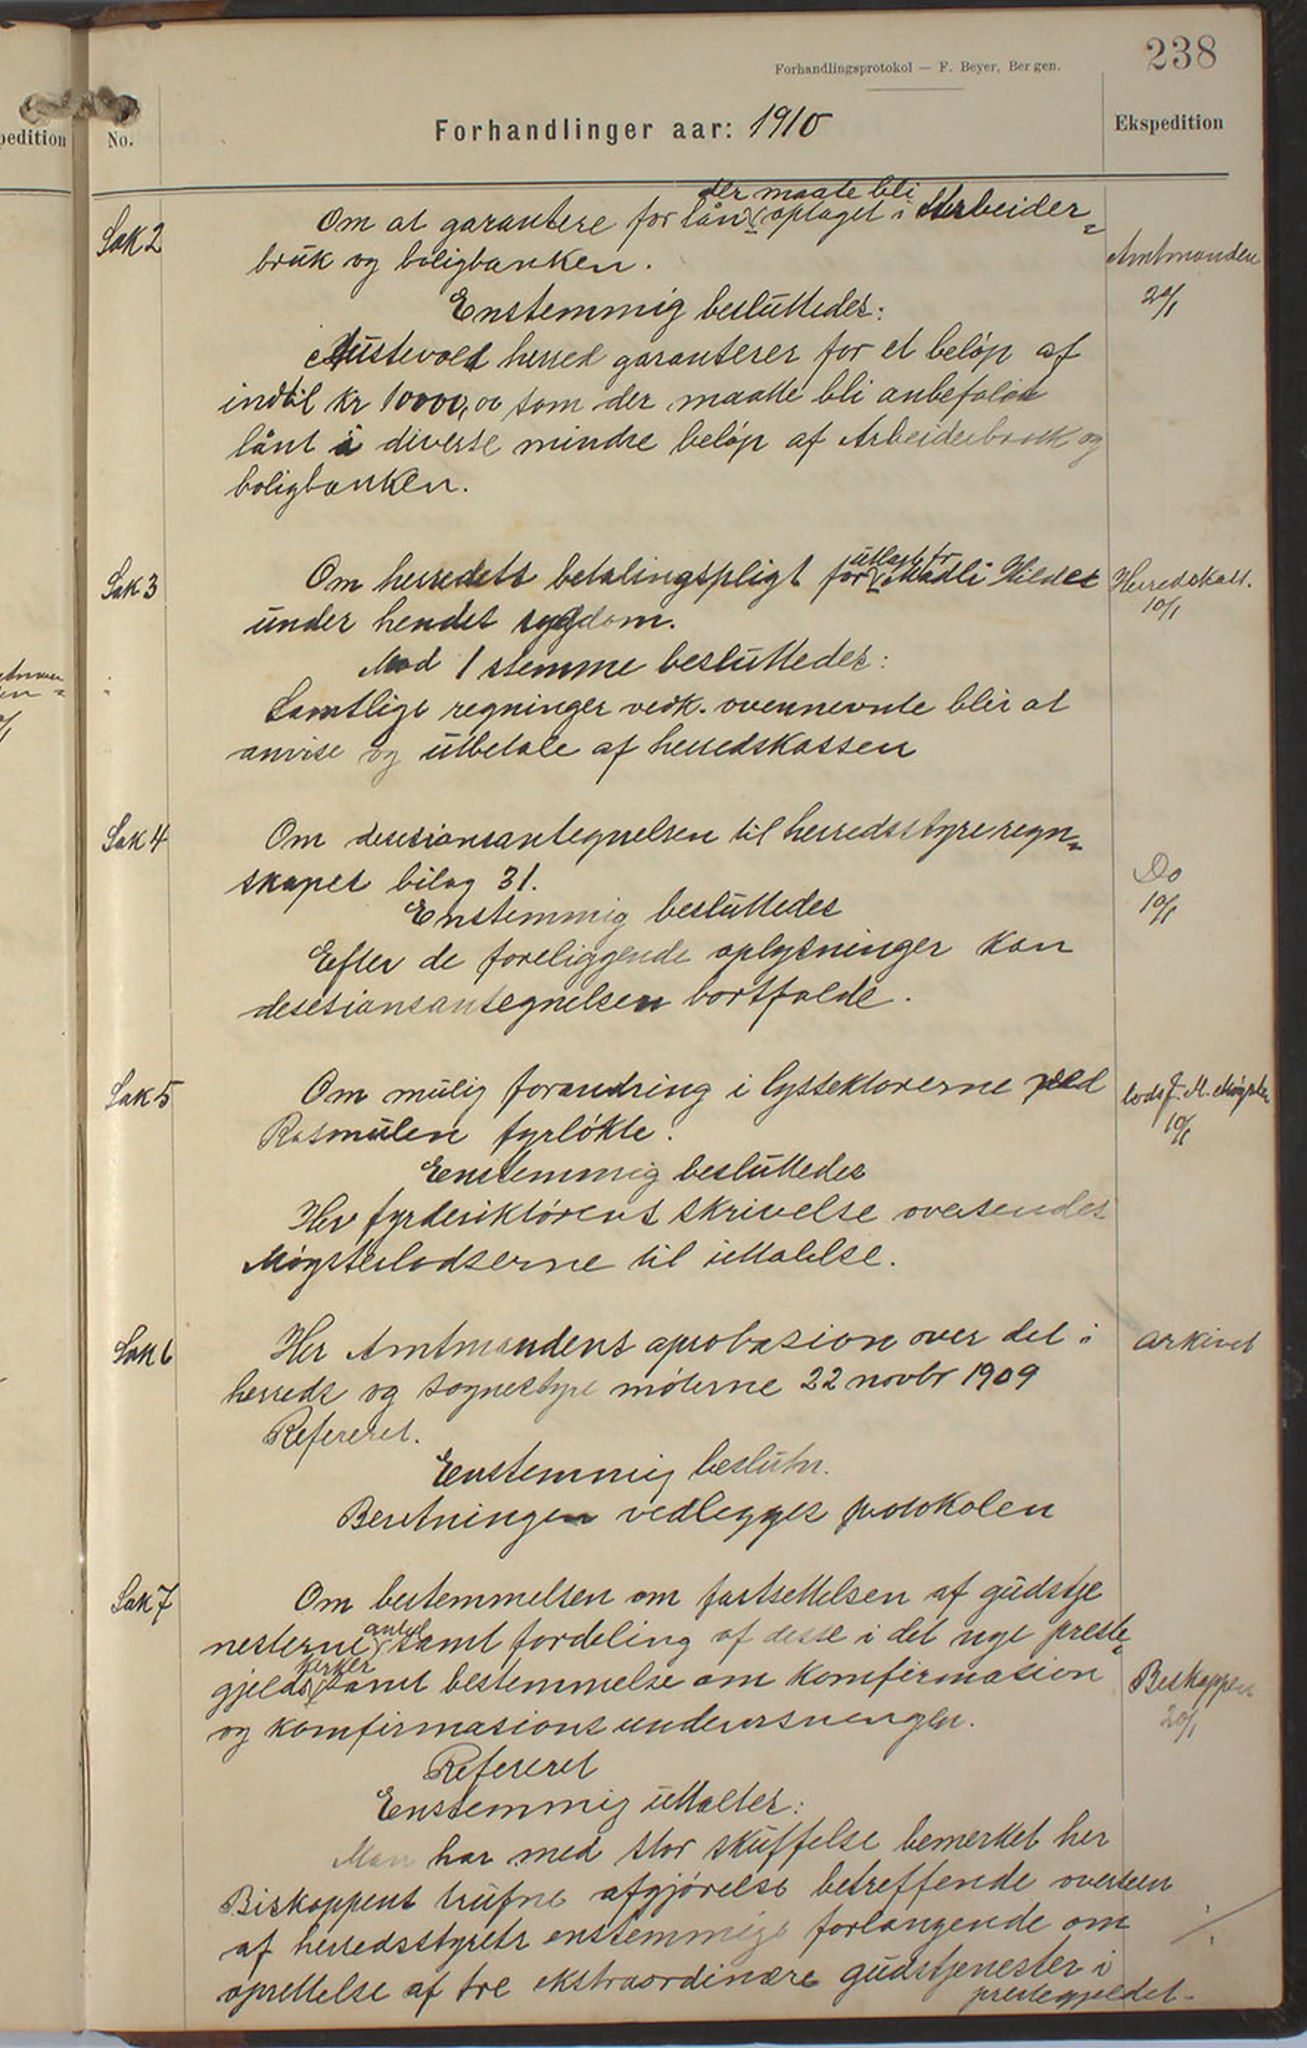 238
Forhandlingsprotokol — F. Beyer, Bergen.
pedition No. Forhandlinger aar: 1910 Ekspedition
Sak 2 Om at garantere for lån der maate bli optaget i Arbeider=
bruk og boligbanken. Amtmanden
Enstemmig besluttedes: 20/1
Austevold herred garanterer for et beløp af
indtil kr 10000,00 som der maatte bli anbefalt
lånt i diverse mindre beløp af Arbeiderbruk og
boligbanken.
Sak 3 Om herredets betalingspligt for utlagte Madli Hildes Herredskass.
under hendes sygdom. 10/1
Mod 1 stemme besluttedes:
Samtlige regninger vedk. ovennevnte blir at
anvise og utbetale af herredskassen
Sak 4 Om desisionsantegnelsen til herredsstyreregn=
skapet bilag 31. Do
Enstemmig besluttedes 10/1
Efter de foreliggende oplysninger kan
desisionsantegnelsen bortfalde.
Sak 5 Om mulig forandring i lyssektorerne ved lods J. M. Møgster
Rasmulen fyrløkte. 10/1
Enstemmig besluttedes
Her fyrderiktørens skrivelse oversendes
Møgsterlodserne til uttalelse.
Sak 6 Her Amtmandens aprobasion over det i arkivet
herreds og sognestyre møterne 22 novbr 1909
Refereret.
Enstemmig beslutn.
Beretningen vedlegges protokolen
Sak 7 Om bestemmelsen om fastsettelsen af gudstje
nesterne antal samt fordeling af desse i det nye preste=
gjelds kerker samt bestemmelse om komfirmasion Biskoppen
og komfirmasionsundervsningen. 20/1
Refereret
Enstemmig uttaltes:
Man har med stor skuffelse bemerket her
Biskoppens trufne afgjørelse betreffende overseen
af herredsstyrets enstemmige forlangende om
oprettelse af tre ekstraordinære gudstjenester i
prestegjeldet-